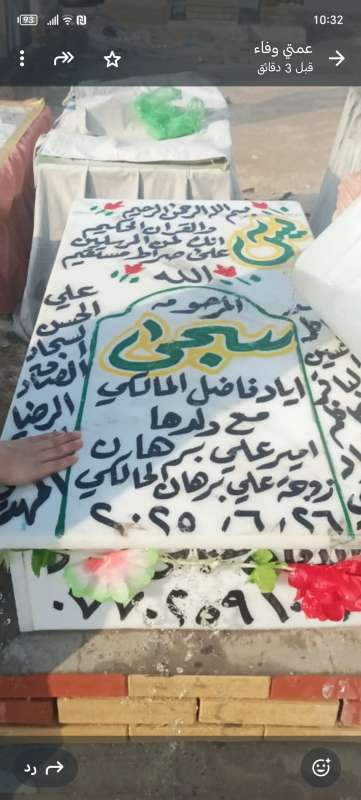 93
10:32
عمتي وفاء
قبل 3 دقائق
بسم الله الرحمن الرحيم
يس
والقران الحكيم
انك لمن المرسلين
على صراط مستقيم
الله
المرحومه
سجى
اياد فاضل المالكي
مع ولدها
امير علي برهان
زوجة علي برهان المالكي
٢٠٢٥/٦/٢٦
علي
الحسن
السجاد
الصادق
الرضا
المهدي
رد